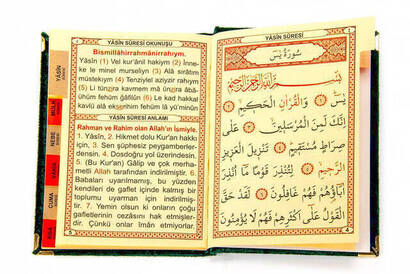 YÂSİN SÛRESİ OKUNUŞU
Bismillâhirrahmânirrahıym.
Yâsin (1) Vel kurânil hakiym (2) İnne-
ke le minel murseliyn (3) Alâ sırâtım
müstekiym (4) Tenziylel aziyzir rahıym
(5) Li tünzira kavmem mâ ünzira âbâ-
ühüm fehüm ğâfilûn (6) Le kad hakkal
kavlü alâ ekserihim fehüm lâ yü'minûn
YÂSİN SÛRESİ ANLAMI
Rahman ve Rahim olan Allah'ın İsmiyle.
1. Yâsîn, 2. Hikmet dolu Kur'an hakkı
için, 3. Sen şüphesiz peygamberler-
densin. 4. Dosdoğru yol üzerindesin.
5. (Bu Kur'an) Gâlip ve çok merha-
metli Allah tarafından indirilmiştir. 6.
Babaları uyarılmamış, bu yüzden
kendileri de gaflet içinde kalmış bir
toplumu uyarman için indirilmiş-
tir. 7. Yemin olsun ki onların çoğu
gafletlerinin cezasını hak etmişler-
dir. Çünkü onlar îman etmiyorlar.
YÂSİN
MÜLK
NEBE
CUMA
YÂSİN SÛRESİ
سُورَةُ يٰسٓ
بِسْمِ اللّٰهِ الرَّحْمٰنِ الرَّحِيمِ
يٰسٓ ﴿١﴾ وَالْقُرْاٰنِ الْحَكِيمِ ﴿٢﴾
اِنَّكَ لَمِنَ الْمُرْسَلِينَ ﴿٣﴾ عَلٰى
صِرَاطٍ مُسْتَقِيمٍ ﴿٤﴾ تَنْزِيلَ الْعَزِيزِ
الرَّحِيمِ ﴿٥﴾ لِتُنْذِرَ قَوْمًا مَٓا اُنْذِرَ
اٰبَٓاؤُهُمْ فَهُمْ غَافِلُونَ ﴿٦﴾ لَقَدْ حَقَّ
الْقَوْلُ عَلٰٓى اَكْثَرِهِمْ فَهُمْ لَا يُؤْمِنُونَ
4